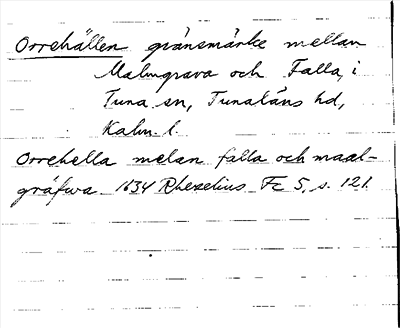 Orrehällen gränsmärke mellan
Malmgrava och Falla, i
Tuna sn, Tunaläns hd,
Kalm. l.
Orrehella melan falla och maal-
gräfwa 1634 Rhezelius Fc 5, s. 121.